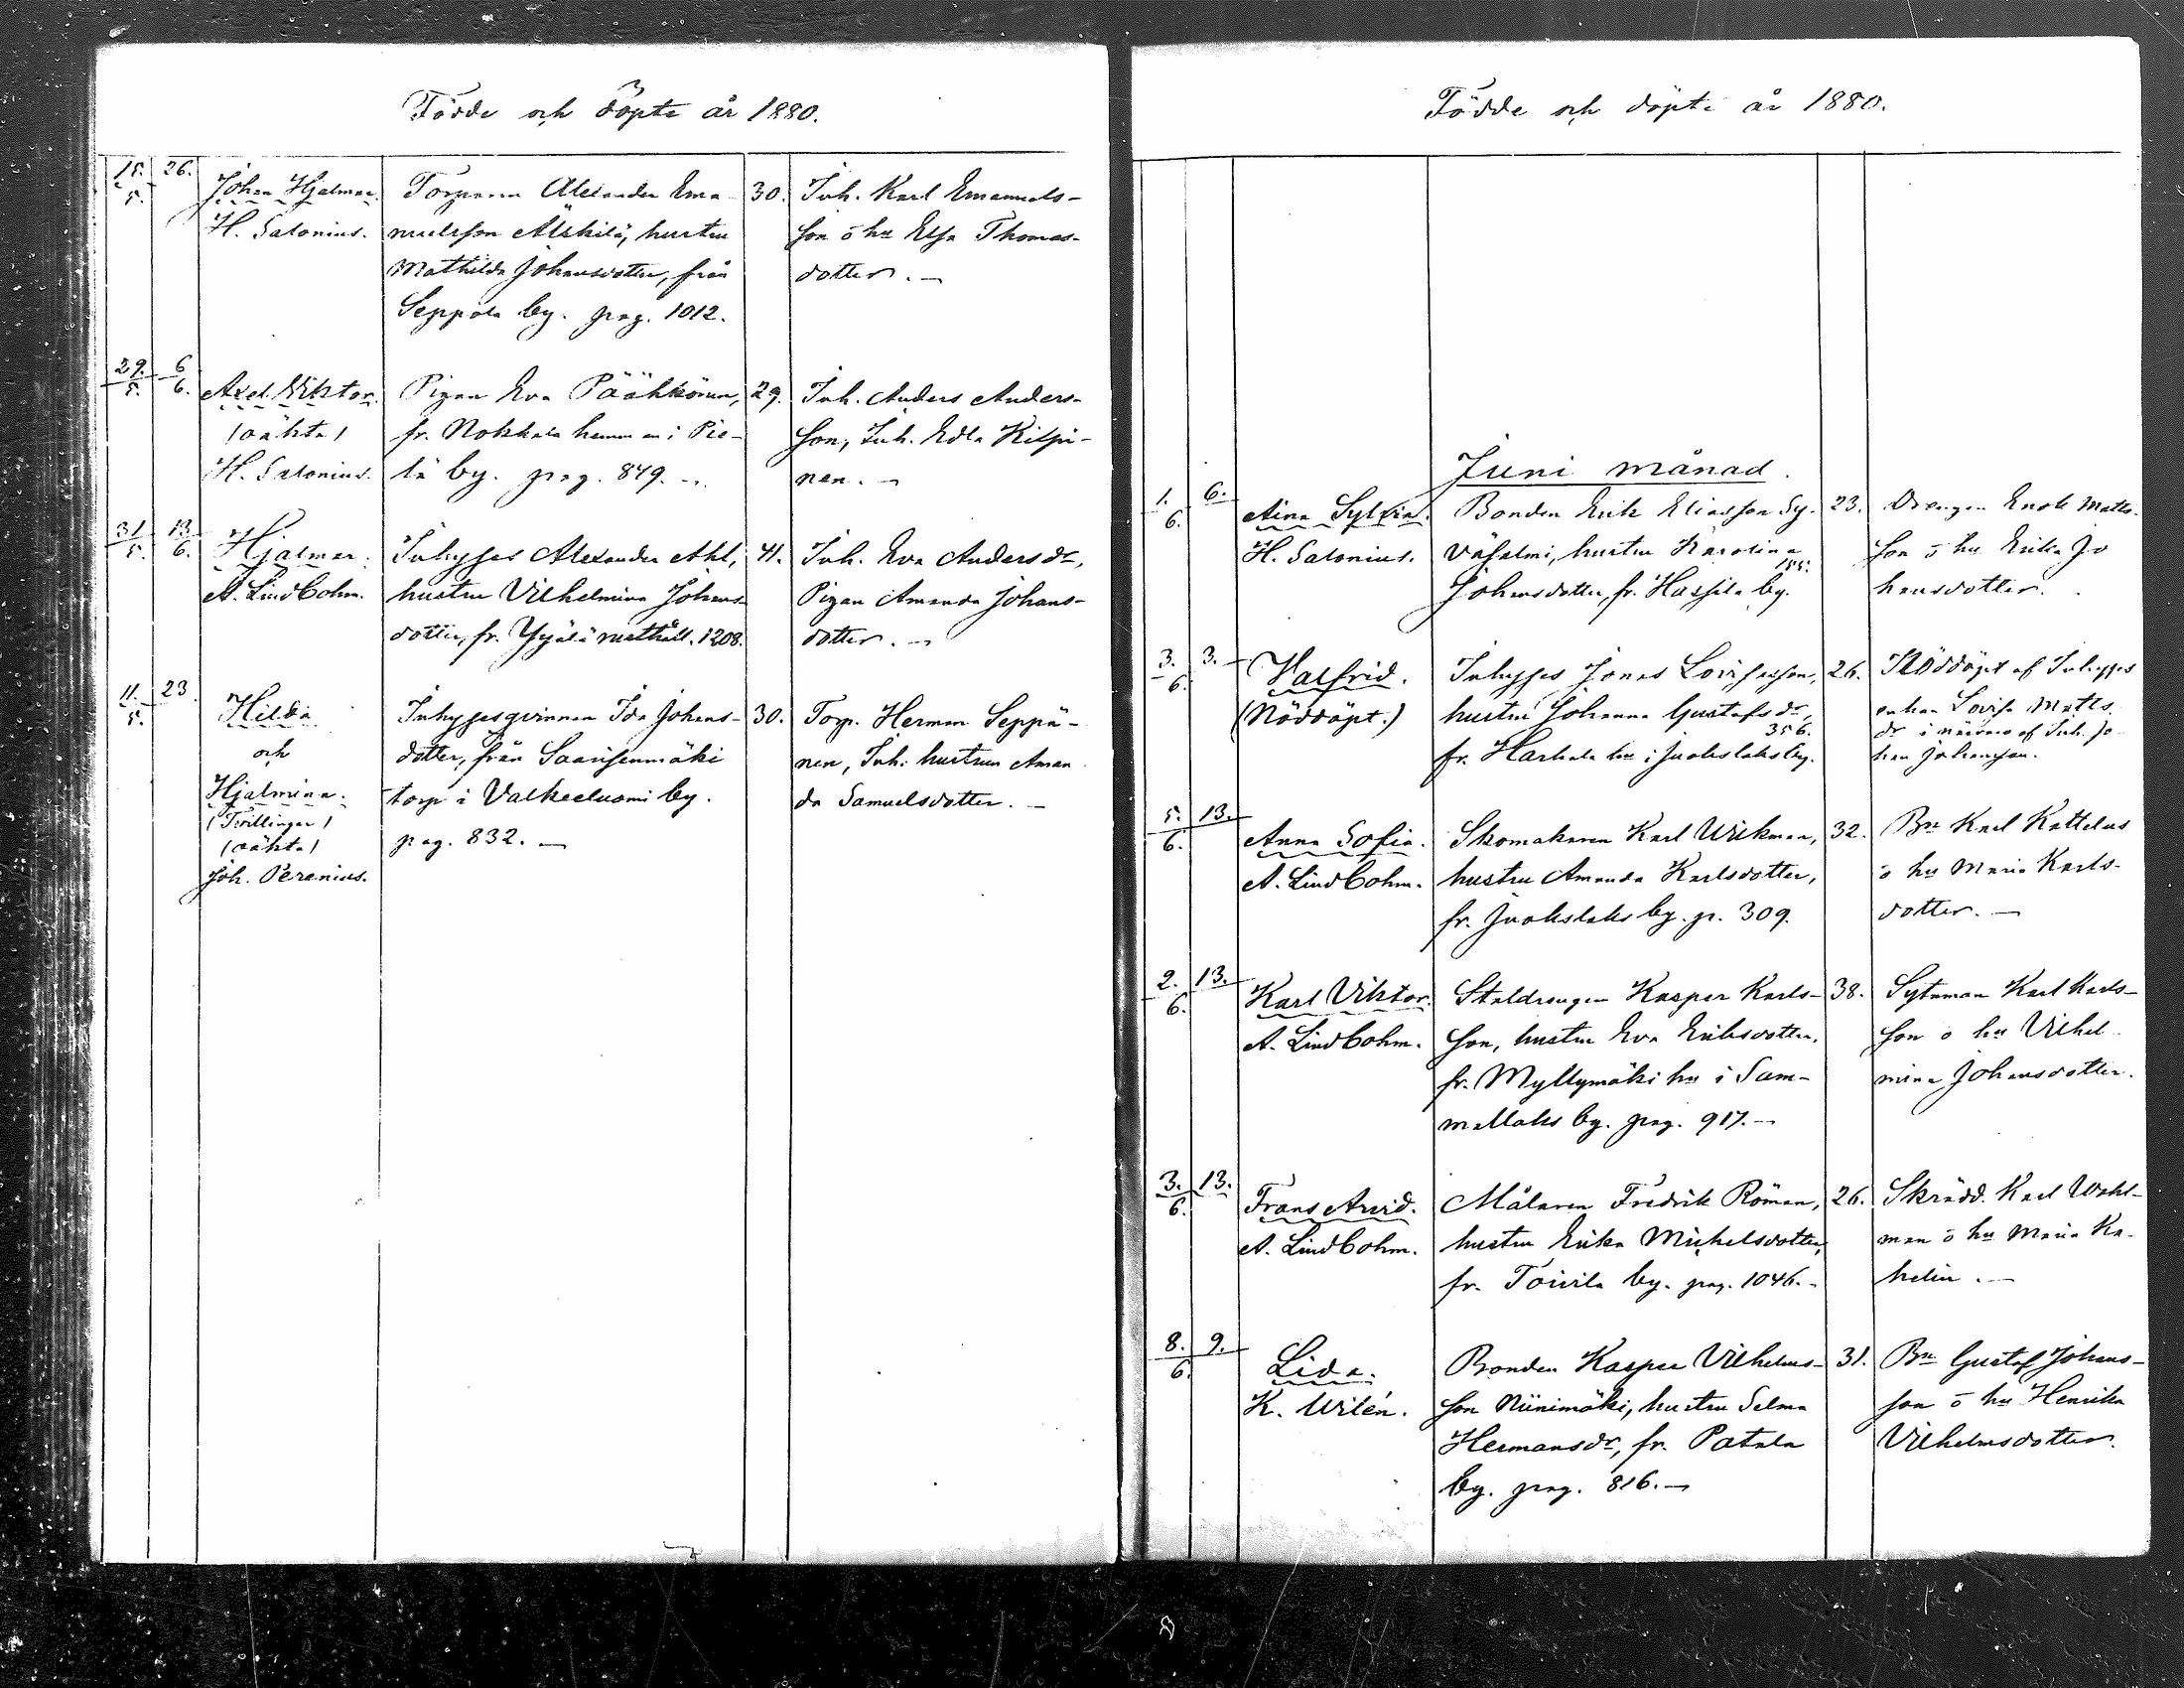 Födde och döpte år 1880.
15. 26.
5.
Johan Hjalmar.
H. Salonius.
Torparen Alexander Ema-
nuelsson Alskilä, hustru
Mathilda Johansdotter, från
Seppälä by. pag. 1012.
30.
Inh. Karl Emanuels-
son o hu Elsa Thomas-
dotter. —
29. 6
5. 6.
Axel Viktor.
(oäkta)
H. Salonius.
Pigan Eva Pääkkönen,
fr. Nokkala hemman i Pie-
lä by. pag. 849. —
29.
Inh. Anders Anders-
son, Inh. Edla Kilpi-
nen. —
31 13
5. 6.
Hjalmar.
A. Lindbohm.
Inhyses Alexander Ahl,
hustru Vilhelmina Johans-
dotter, fr. 1208.
41.
Inh. Eva Andersdr,
Pigan Amanda Johans-
dotter. —
11. 23
5.
Hilda
och
Hjalmina.
(Tvillingar)
(oäkta)
Joh. Perenius.
Inhysesqvinnan Ida Johans-
dotter, från Saarisenmäki
torp i Valkeeluomi by.
pag. 832. —
30.
Torp. Herman Seppä-
nen, Inh. hustrun Aman
da Samuelsdotter. —
Födde och döpte år 1880.
Juni månad.
1. 6.
6.
Aina Sylvia.
H. Salonius.
Bonden Erik Eliasson Sy-
väsalmi, hustru Karolina
155.
Johansdotter, fr. Hassila by.
23.
Drengen Enok Matts-
son o hu Erika Jo
hansdotter.
3. 3.
6.
Valfrid.
(Nöddöpt.)
Inhyses Jonas Lovisasson,
hustru Johanna Gustafsdr,
356.
fr. Harkala hn i Juokslaks by.
26.
Nöddöpt af Inhyses
enkan Lovisa Matts
dr i närvaro af Inh. Jo
han Johansson.
5. 13.
6.
Anna Sofia.
A. Lindbohm.
Skomakaren Karl Wikman,
hustru Amanda Karlsdotter,
fr. Juokslaks by. p. 309.
32.
Bn Karl Kattelus
o hu Maria Karls-
dotter. —
2. 13.
6.
Karl Viktor.
A. Lindbohm.
Staldrengen Kasper Karls-
son, hustru Eva Eriksdotter,
fr. Myllymäki hn i Sam-
mallaks by. pag. 917. —
38.
Sytnman Karl Karls-
son o hu Vilhel-
mina Johansdotter.
3. 13.
6.
Frans Arvid.
A. Lindbohm.
Målaren Fredrik Röman,
hustru Erika Michelsdotter,
fr. Toivila by. pag. 1046. -
26.
Skrädd. Karl Wahl-
man o hu Maria Ka-
helin. —
8. 9.
6.
Lida.
K. Wilén.
Bonden Kasper Vilhelms-
son Niinimäki, hustru Selma
Hermansdr, fr. Patala
by. pag. 816. —
31.
Bn Gustaf Johans-
son o hu Henrika
Vilhelmsdotter.